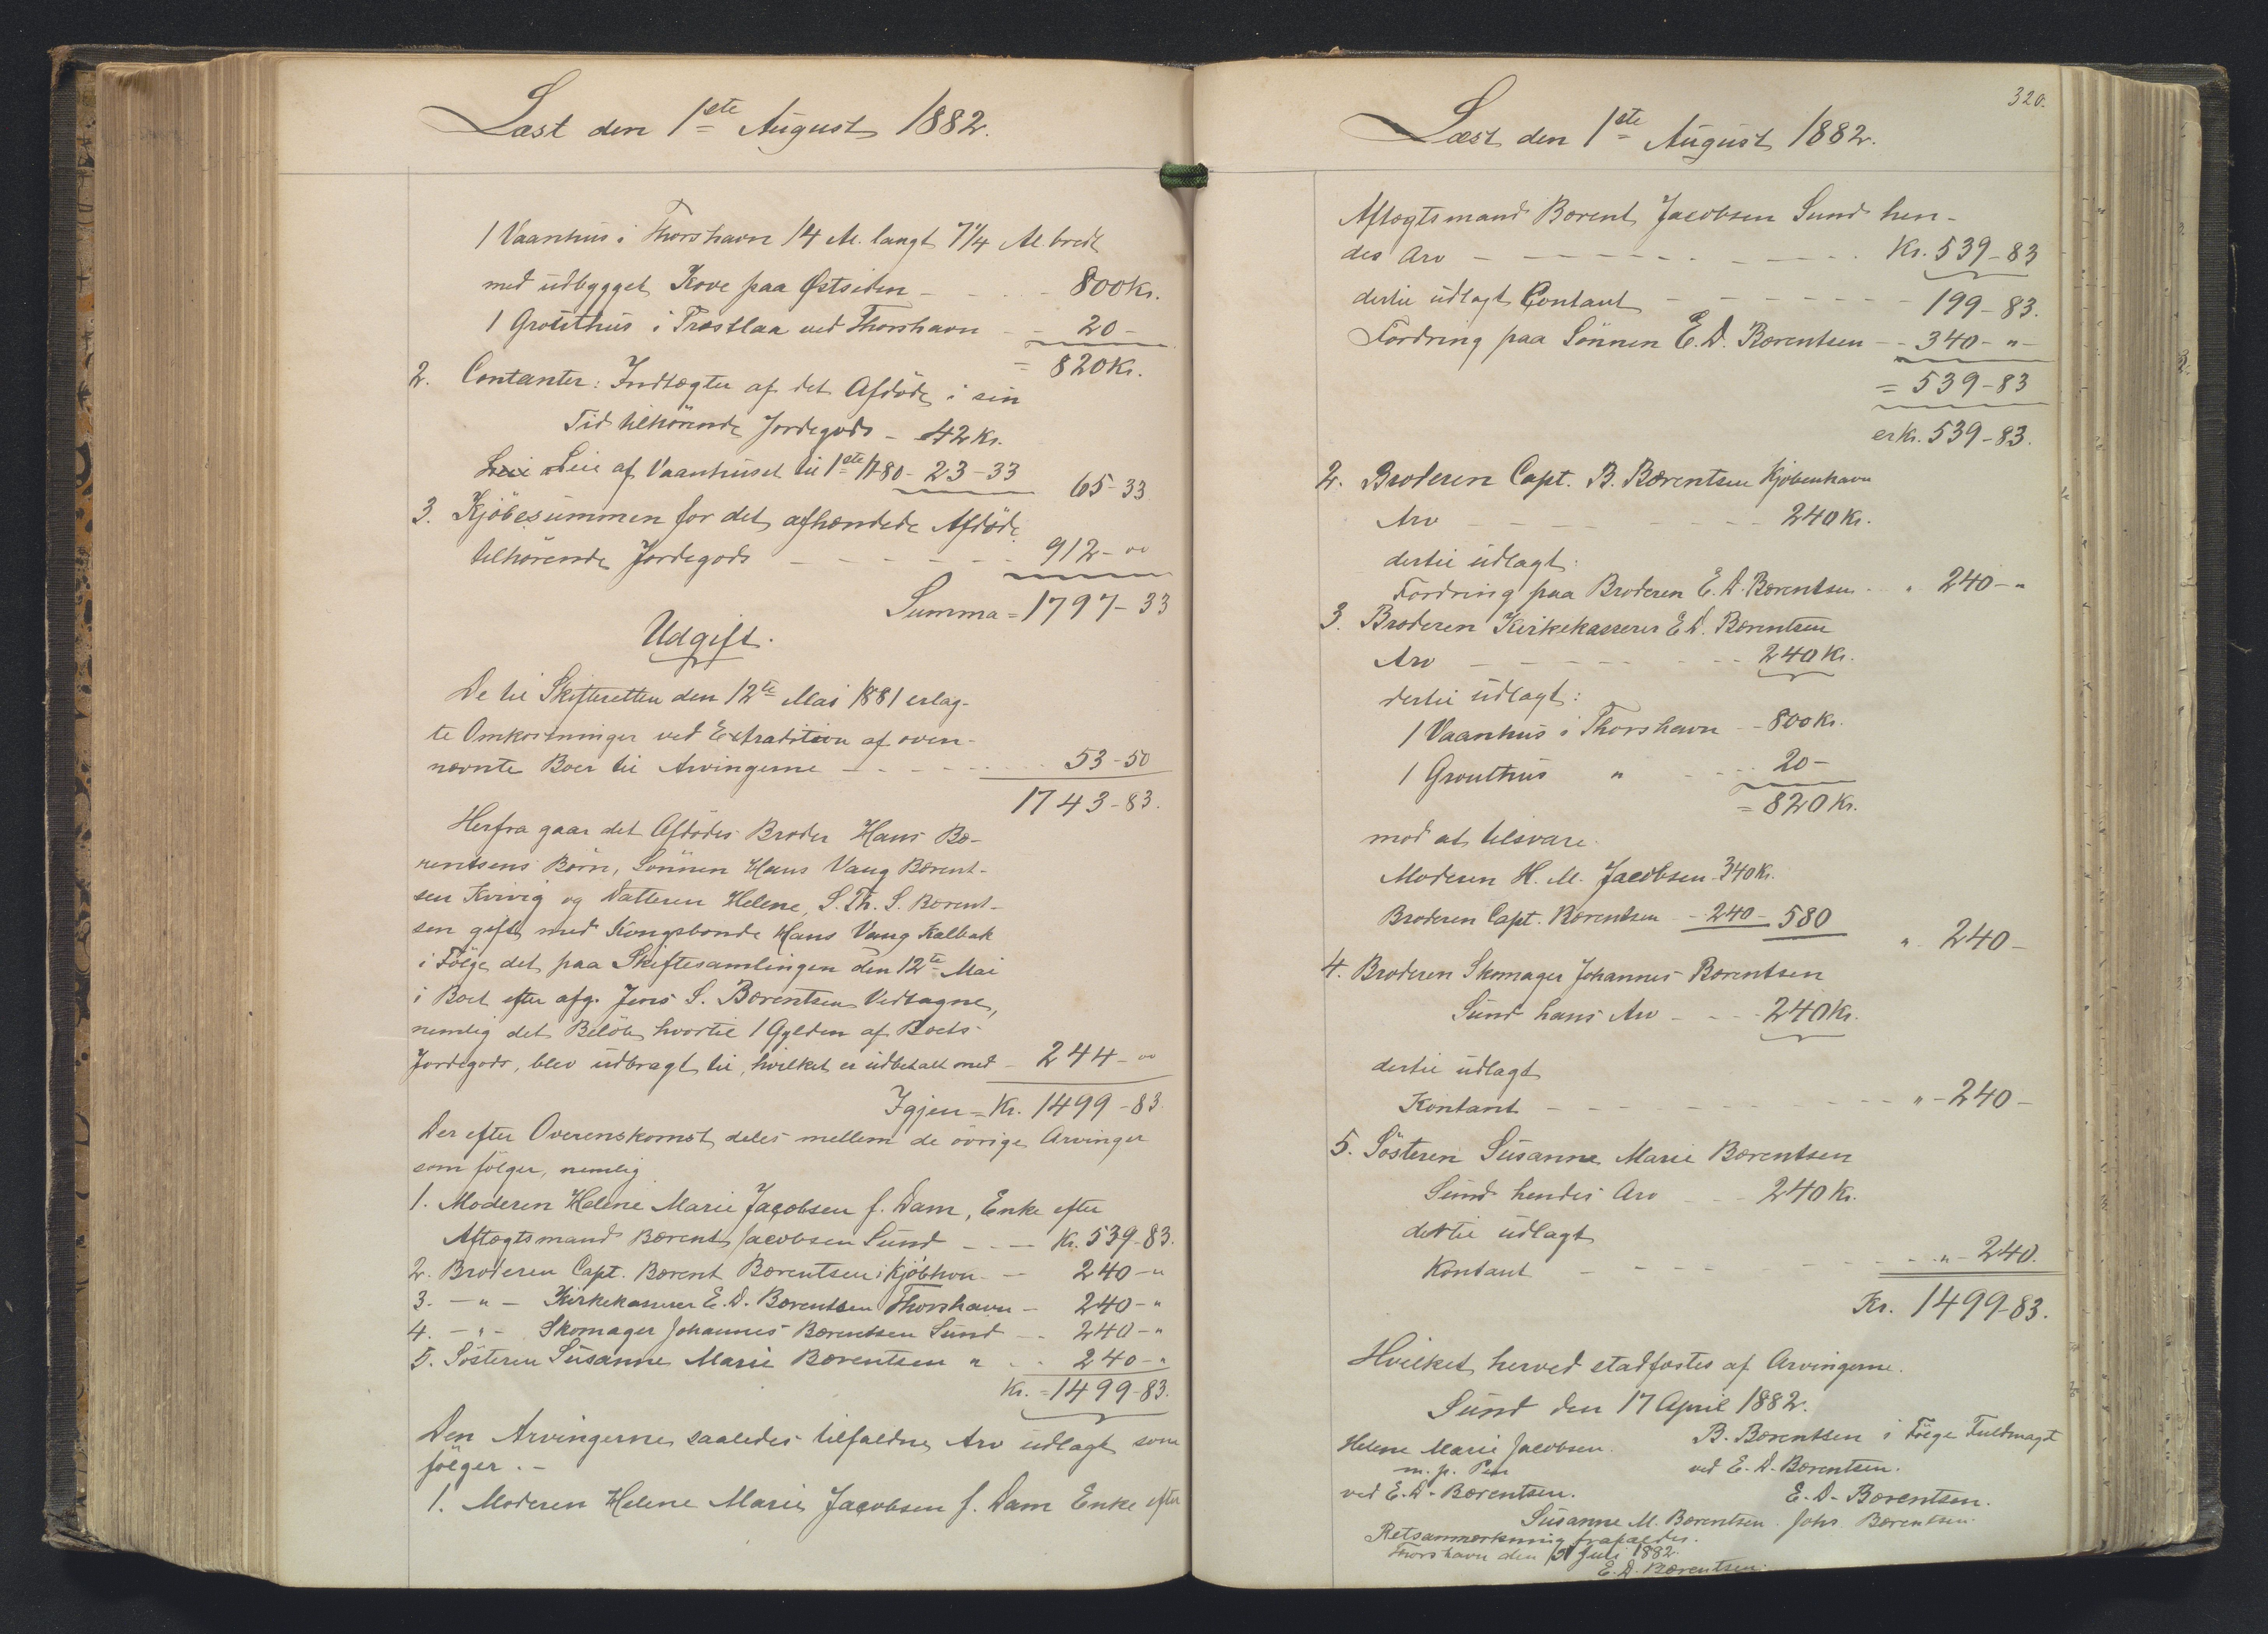 Læst den 1ste August 1882.
1 Vaanhus i Thorshavn 14 Al. langt 7 1/4 Al. bredt
med udbygget Kove paa Østsiden - - - 800 Kr.
1 Grothus i Træstlaa ved Thorshavn - - 20 -
= 820 Kr.
2. Contanter: Indtægter af det Afdöde i sin
Tid tilhörende Jordegods - 42 Kr.
Leie af Vaanhuset til 1ste 80 - 23-33 65-33
3. Kjöbesummen for det afhændede Afdöde
tilhörende Jordegods - - - - - - 912-"
Summa = 1797-33
Udgift.
De til Skifteretten den 12te Mai 1881 erlag-
te Omkostninger ved Extradition af oven-
nævnte Boer til Arvingerne - - - - - 53-50
1743-83.
Herfra gaar det Afdödes Broder Hans Bæ-
rentsens Börn, Sönnen Hans Vang Bærent-
sen Kvivig og Datteren Helene, S. Th. S. Bærent-
sen gift med Kongsbonde Hans Vang Kalbak
i Fölge det paa Skiftesamlingen den 12te Mai
i Boet efter afg. Jens S. Bærentsen Vedtagne,
nemlig det Belöb, hvortil 1 Gylden af Boets
Jordegods, blev udbragt til, hvilket er udbetalt med - 244-"
Igjen = Kr. 1499-83.
Der efter Overenskomst deles mellem de övrige Arvinger
som fölger, nemlig
1. Moderen Helene Marie Jacobsen f. Dam, Enke efter
Aftægtsmand Bærent Jacobsen Sund - - - Kr. 539-83.
2. Broderen Capt. Bærent Bærentsen i Kjöbhvn - - 240-"
3. - " - Kirkekasserer E. D. Bærentsen Thorshavn - 240-"
4. - " - Skomager Johannes Bærentsen Sund - - 240-"
5. Sösteren Susanne Marie Bærentsen " - - 240-"
Kr. = 1499-83.
Den Arvingerne saaledes tilfaldne Arv udlagt som
fölger. -
1. Moderen Helene Marie Jacobsen f. Dam Enke efter
320.
Læst den 1ste August 1882.
Aftægtsmand Bærent Jacobsen Sund hen-
des Arv - - - - - - - - - Kr. 539-83
dertil udlagt Contant - - - - - - - 199-83.
Fordring paa Sönnen E. D. Bærentsen - - 340-"-
= 539-83
er Kr. 539-83.
2. Broderen Capt. B. Bærentsen Kjöbenhavn
Arv - - - - - 240 Kr.
dertil udlagt:
Fordring paa Broderen E. D. Bærentsen - " 240-"
3. Broderen Kirkekasserer E. D. Bærentsen
Arv - - - - - - 240 Kr.
dertil udlagt:
1 Vaanhus i Thorshavn - - 800 Kr.
1 Grouthus " - - - 20 -
= 820 Kr.
mod at tilsvare
Moderen H. M. Jacobsen 340 Kr.
Broderen Capt. Bærentsen - - 240 - 580
" 240 -
4. Broderen Skomager Johannes Bærentsen
Sund hans Arv - - - 240 Kr.
dertil udlagt
Kontant - - - - - - - - " - 240 -
5. Sösteren Susanne Marie Bærentsen
Sund hendes Arv - - - 240 Kr.
dertil udlagt
Kontant - - - - - - - - " - 240.
Kr. 1499-83.
Hvilket herved stadfæstes af Arvingerne.
Sund den 17 April 1882.
Helene Marie Jacobsen. B. Bærentsen i Fölge Fuldmagt
m. p. Pen ved E. D. Bærentsen.
ved E. D. Bærentsen. E. D. Bærentsen.
Susanne M. Bærentsen. Johs Bærentsen.
Retsanmærkning frafaldes.
Thorshavn den Juli 1882.
E. D. Bærentsen.